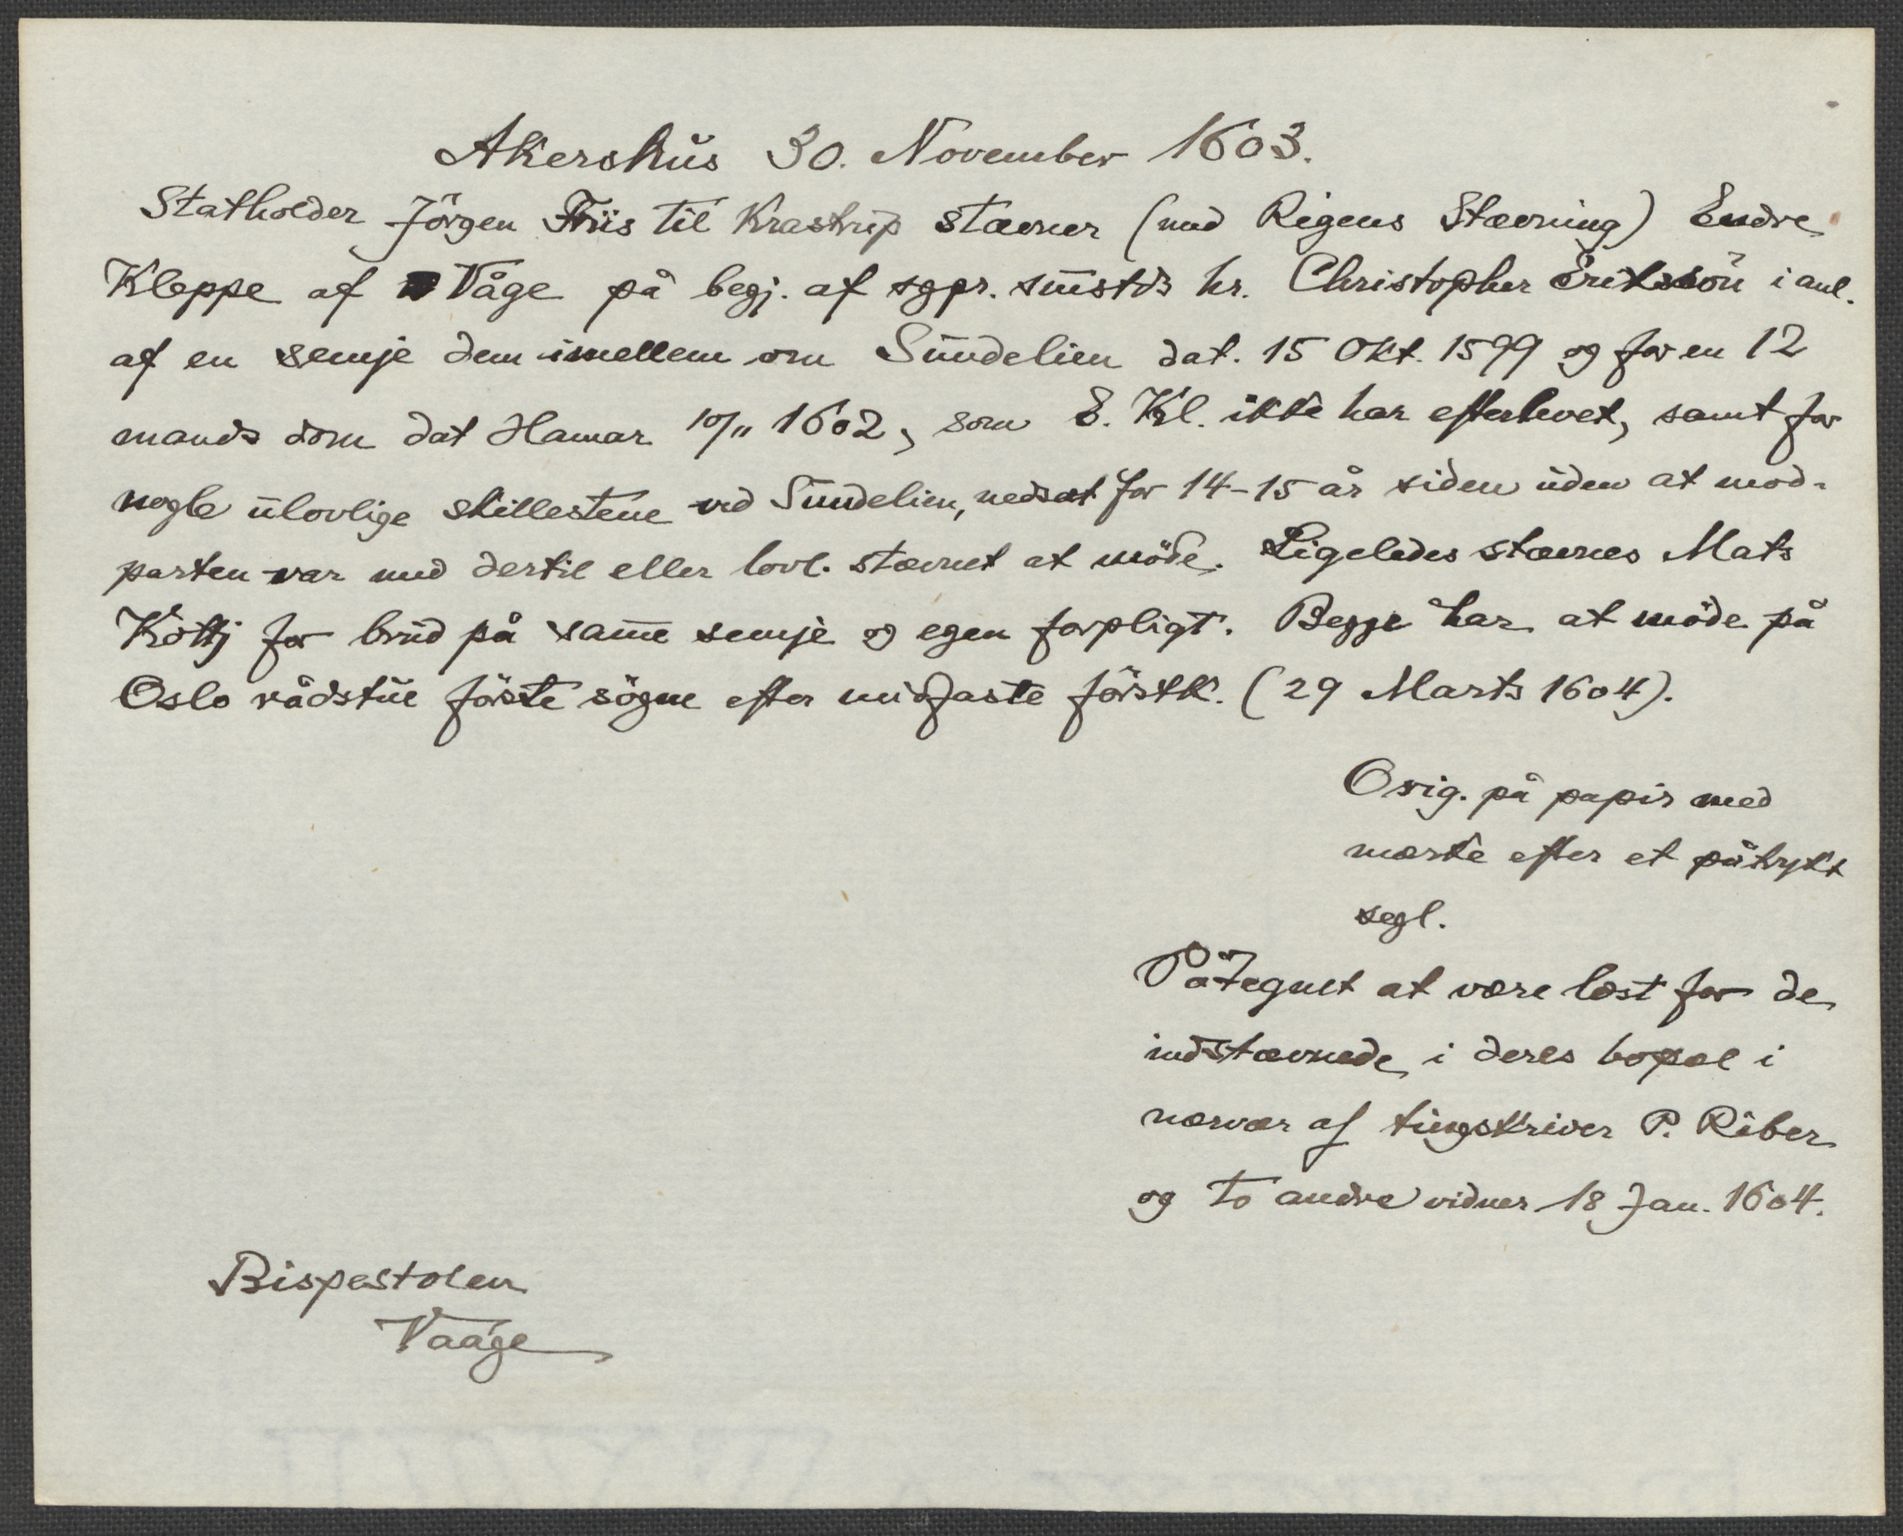 Akershus 30. November 1603.
Statholder Jörgen Friis til Krastrup stævner (med Rigens Stævning) Endre
Kleppe af Våge på begj. af sgpr. smstds hr. Christopher Erikssön i anl.
af en semje dem imellem om Sundelien dat. 15 Okt. 1599 og for en 12
mands dom dat Hamar 10/11 1602, som E. Kl. ikke har efterlevet, samt for
nogle ulovlige skillestene ved Sundelien, nedsat for 14-15 år siden uden at mod-
parten var med dertil eller lovl. stævnet at möde. Ligeledes stævnes Mats
for brud på samme semje og egen forpligt. Begge har at möde på
Oslo rådstue förste sögne efter midfaste förstk. (29 Marts 1604).
Orig. på papir med
mærke efter et påtrykt
segl.
Påtegnet at være læst for de
indstævnede i deres bopæl i
nærvær af tingskriver P. Riber
og to andre vidner 18 Jan. 1604.
Bispestolen
Vaage